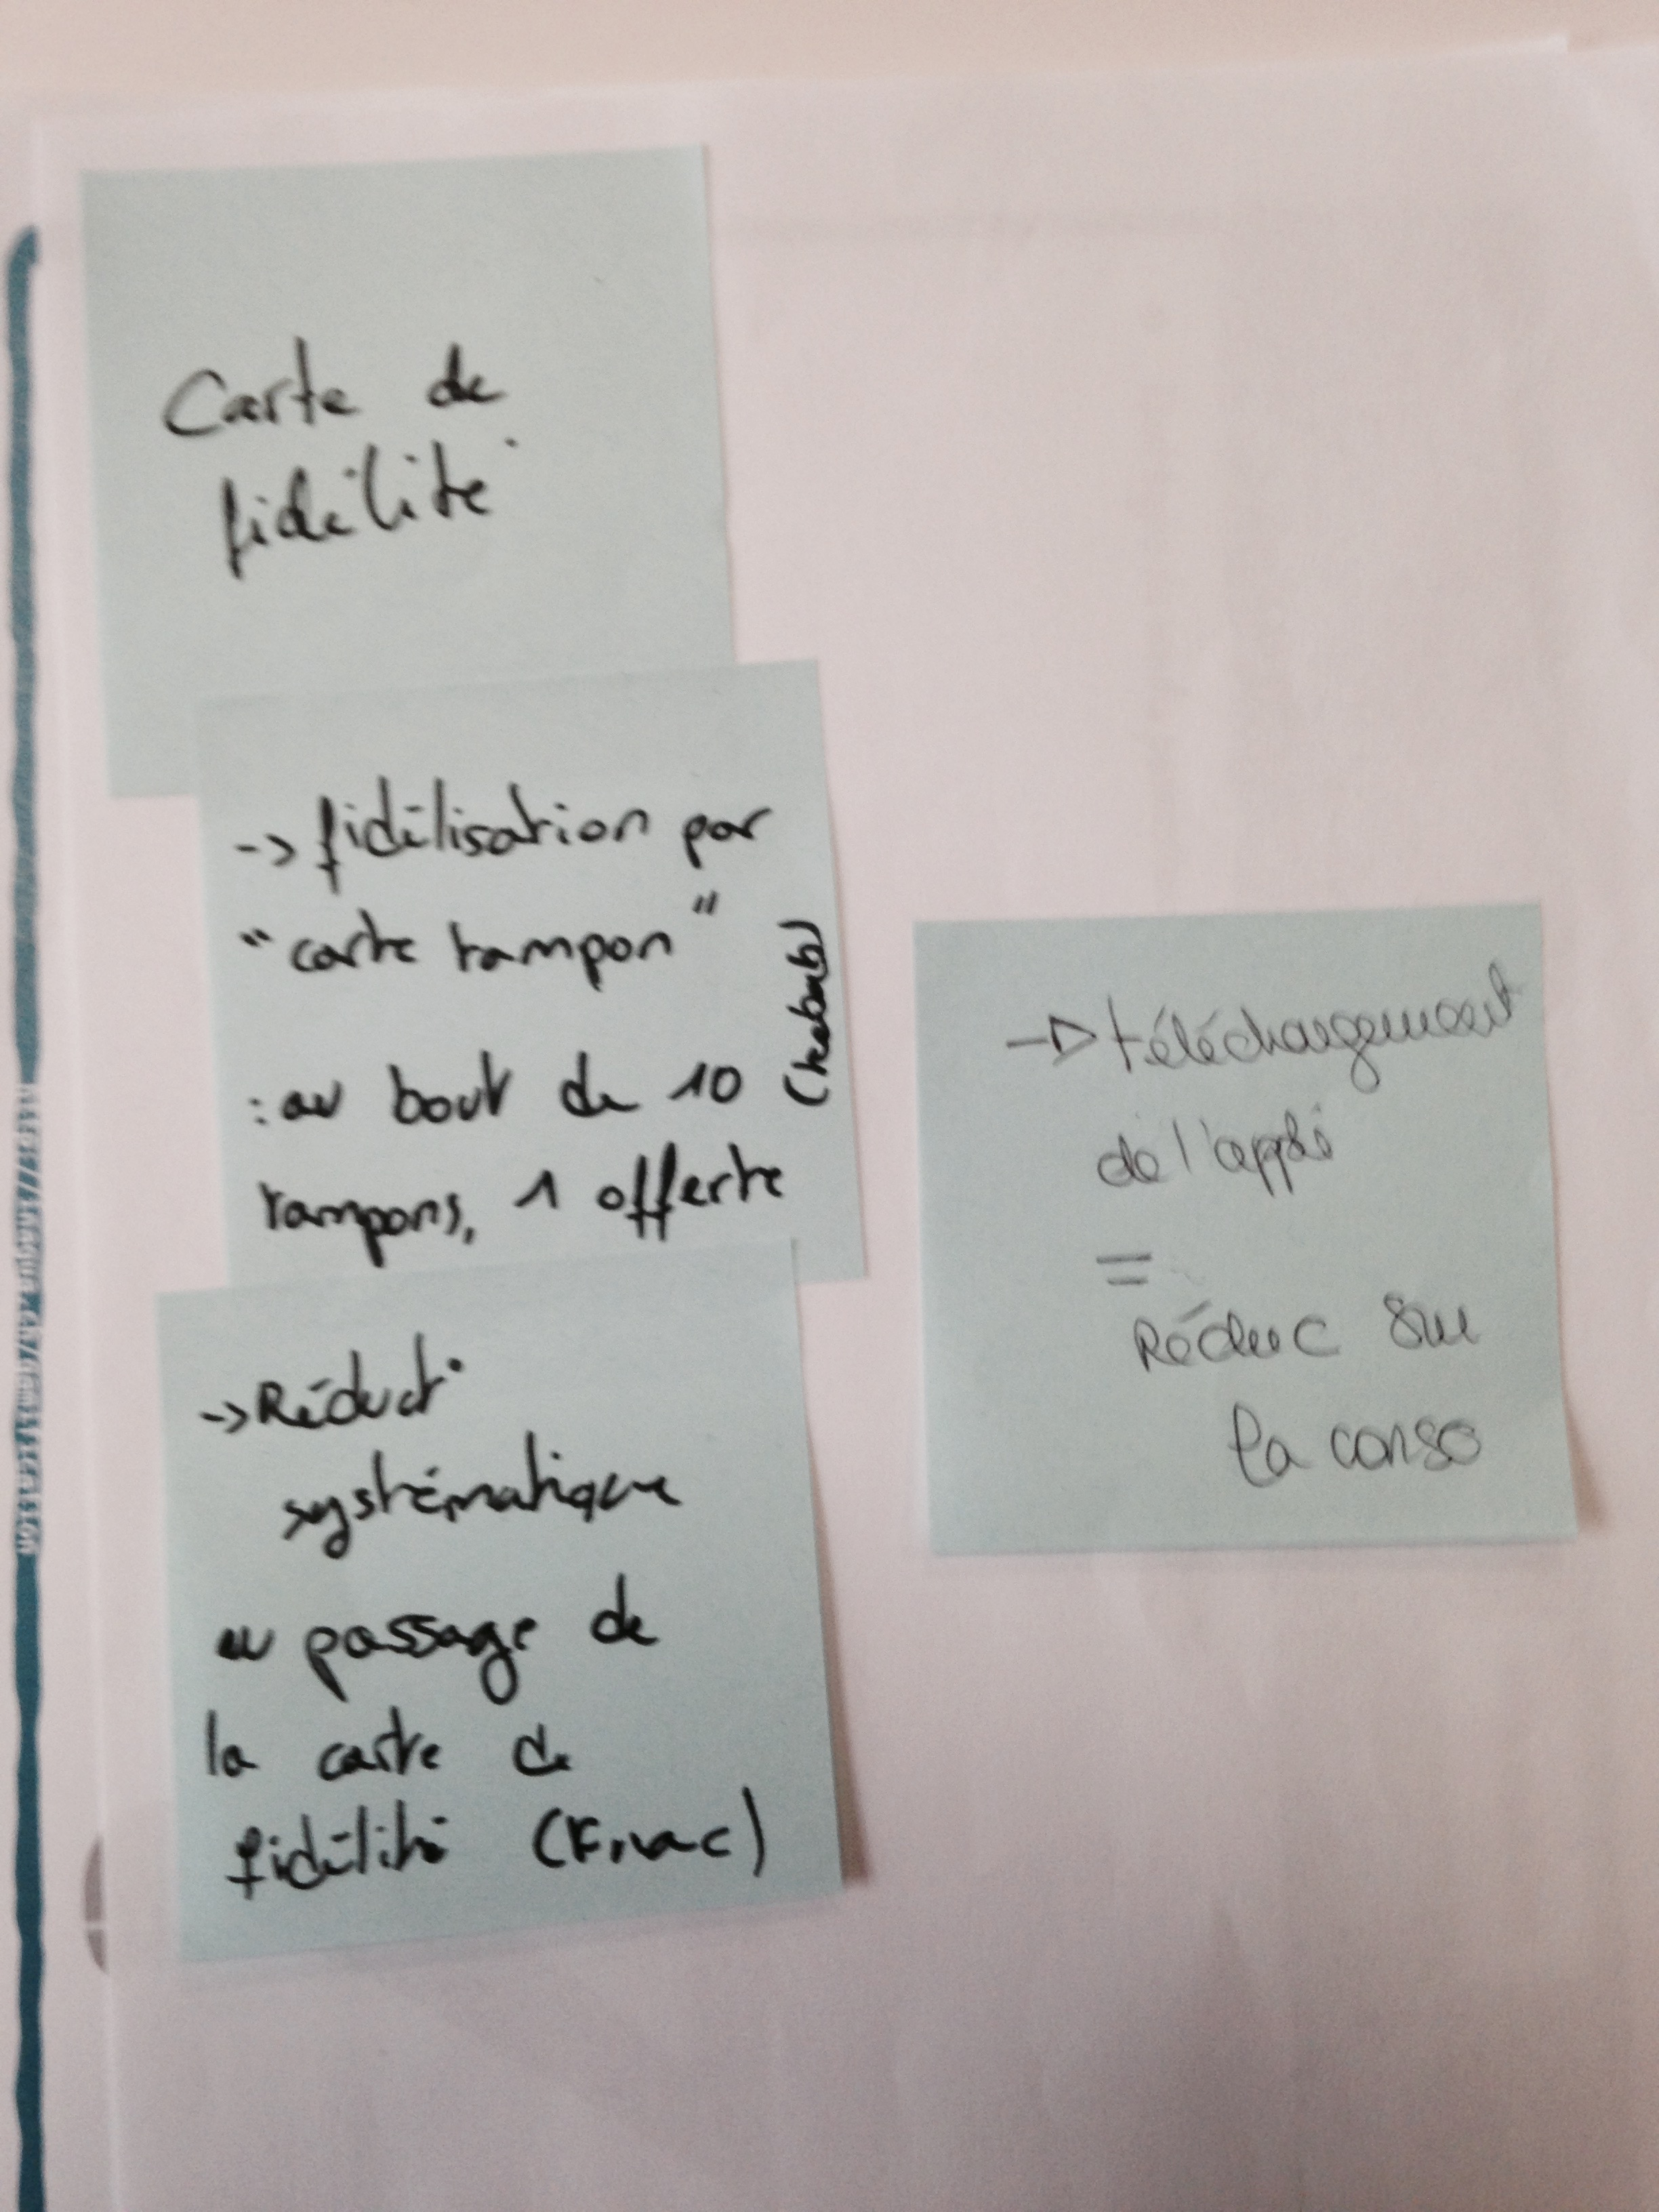 Carte de
fidélité
-> fidélisation par
"carte tampon"
(kebab)
: au bout de 10
tampons, 1 offerte
-> Réduct°
systématique
au passage de
la carte de
fidélité (Fnac)
-> téléchargement
de l'appli
=
Réduc sur
la conso